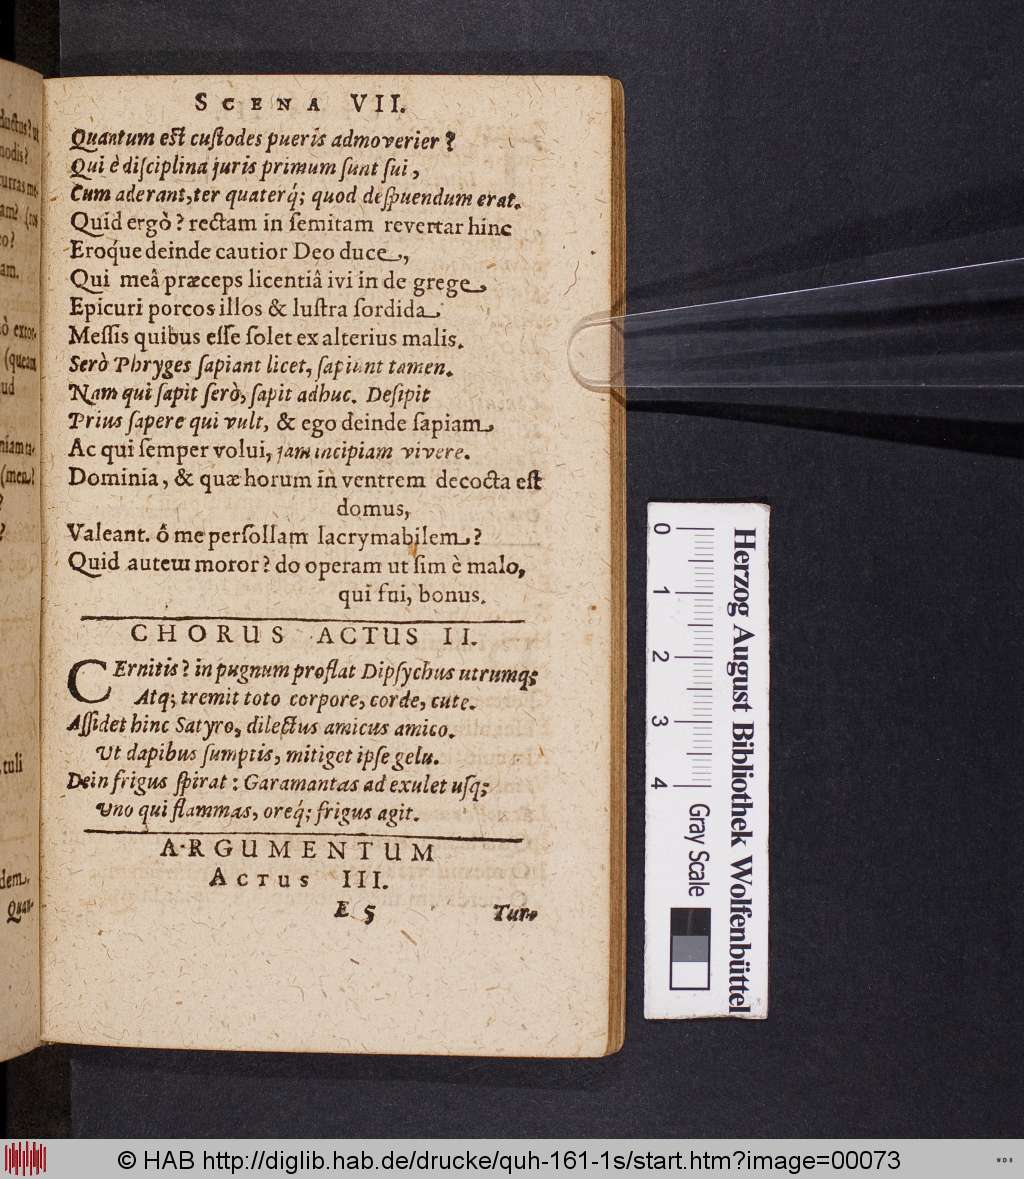 ductus? ut
nodis?
curras me
am? (tos
co?
am.
ò extor-
(queam
ud
niam ta-
(men?
?
?
tuli
dem,
Quan-
SCENA VII.
Quantum est custodes pueris admoverier?
Qui è disciplina juris primum sunt sui,
Cum aderant, ter quaterq́; quod despuendum erat.
Quid ergò? rectam in semitam revertar hinc
Eroq́ue deinde cautior Deo duce,
Qui meâ præceps licentiâ ivi in de grege,
Epicuri porcos illos & lustra sordida,
Messis quibus esse solet ex alterius malis.
Serò Phryges sapiant licet, sapiant tamen.
Nam qui sapit serò, sapit adhuc. Desipit
Prius sapere qui vult, & ego deinde sapiam,
Ac qui semper volui, jam incipiam vivere.
Dominia, & quæ horum in ventrem decocta est
domus,
Valeant. ô me persollam lacrymabilem?
Quid autem moror? do operam ut sim è malo,
qui fui, bonus.
CHORUS ACTUS II.
CErnitis? in pugnum proflat Dipsychus utrumq;
Atq; tremit toto corpore, corde, cute.
Assidet hinc Satyro, dilectus amicus amico.
Ut dapibus sumptis, mitiget ipse gelu.
Dein frigus spirat: Garamantas ad exulet usq;
Uno qui flammas, oreq́; frigus agit.
ARGUMENTUM
ACTUS III.
E 5 Tur-
0 1 2 3 4
Gray Scale
Herzog August Bibliothek Wolfenbüttel
© HAB http://diglib.hab.de/drucke/quh-161-1s/start.htm?image=00073